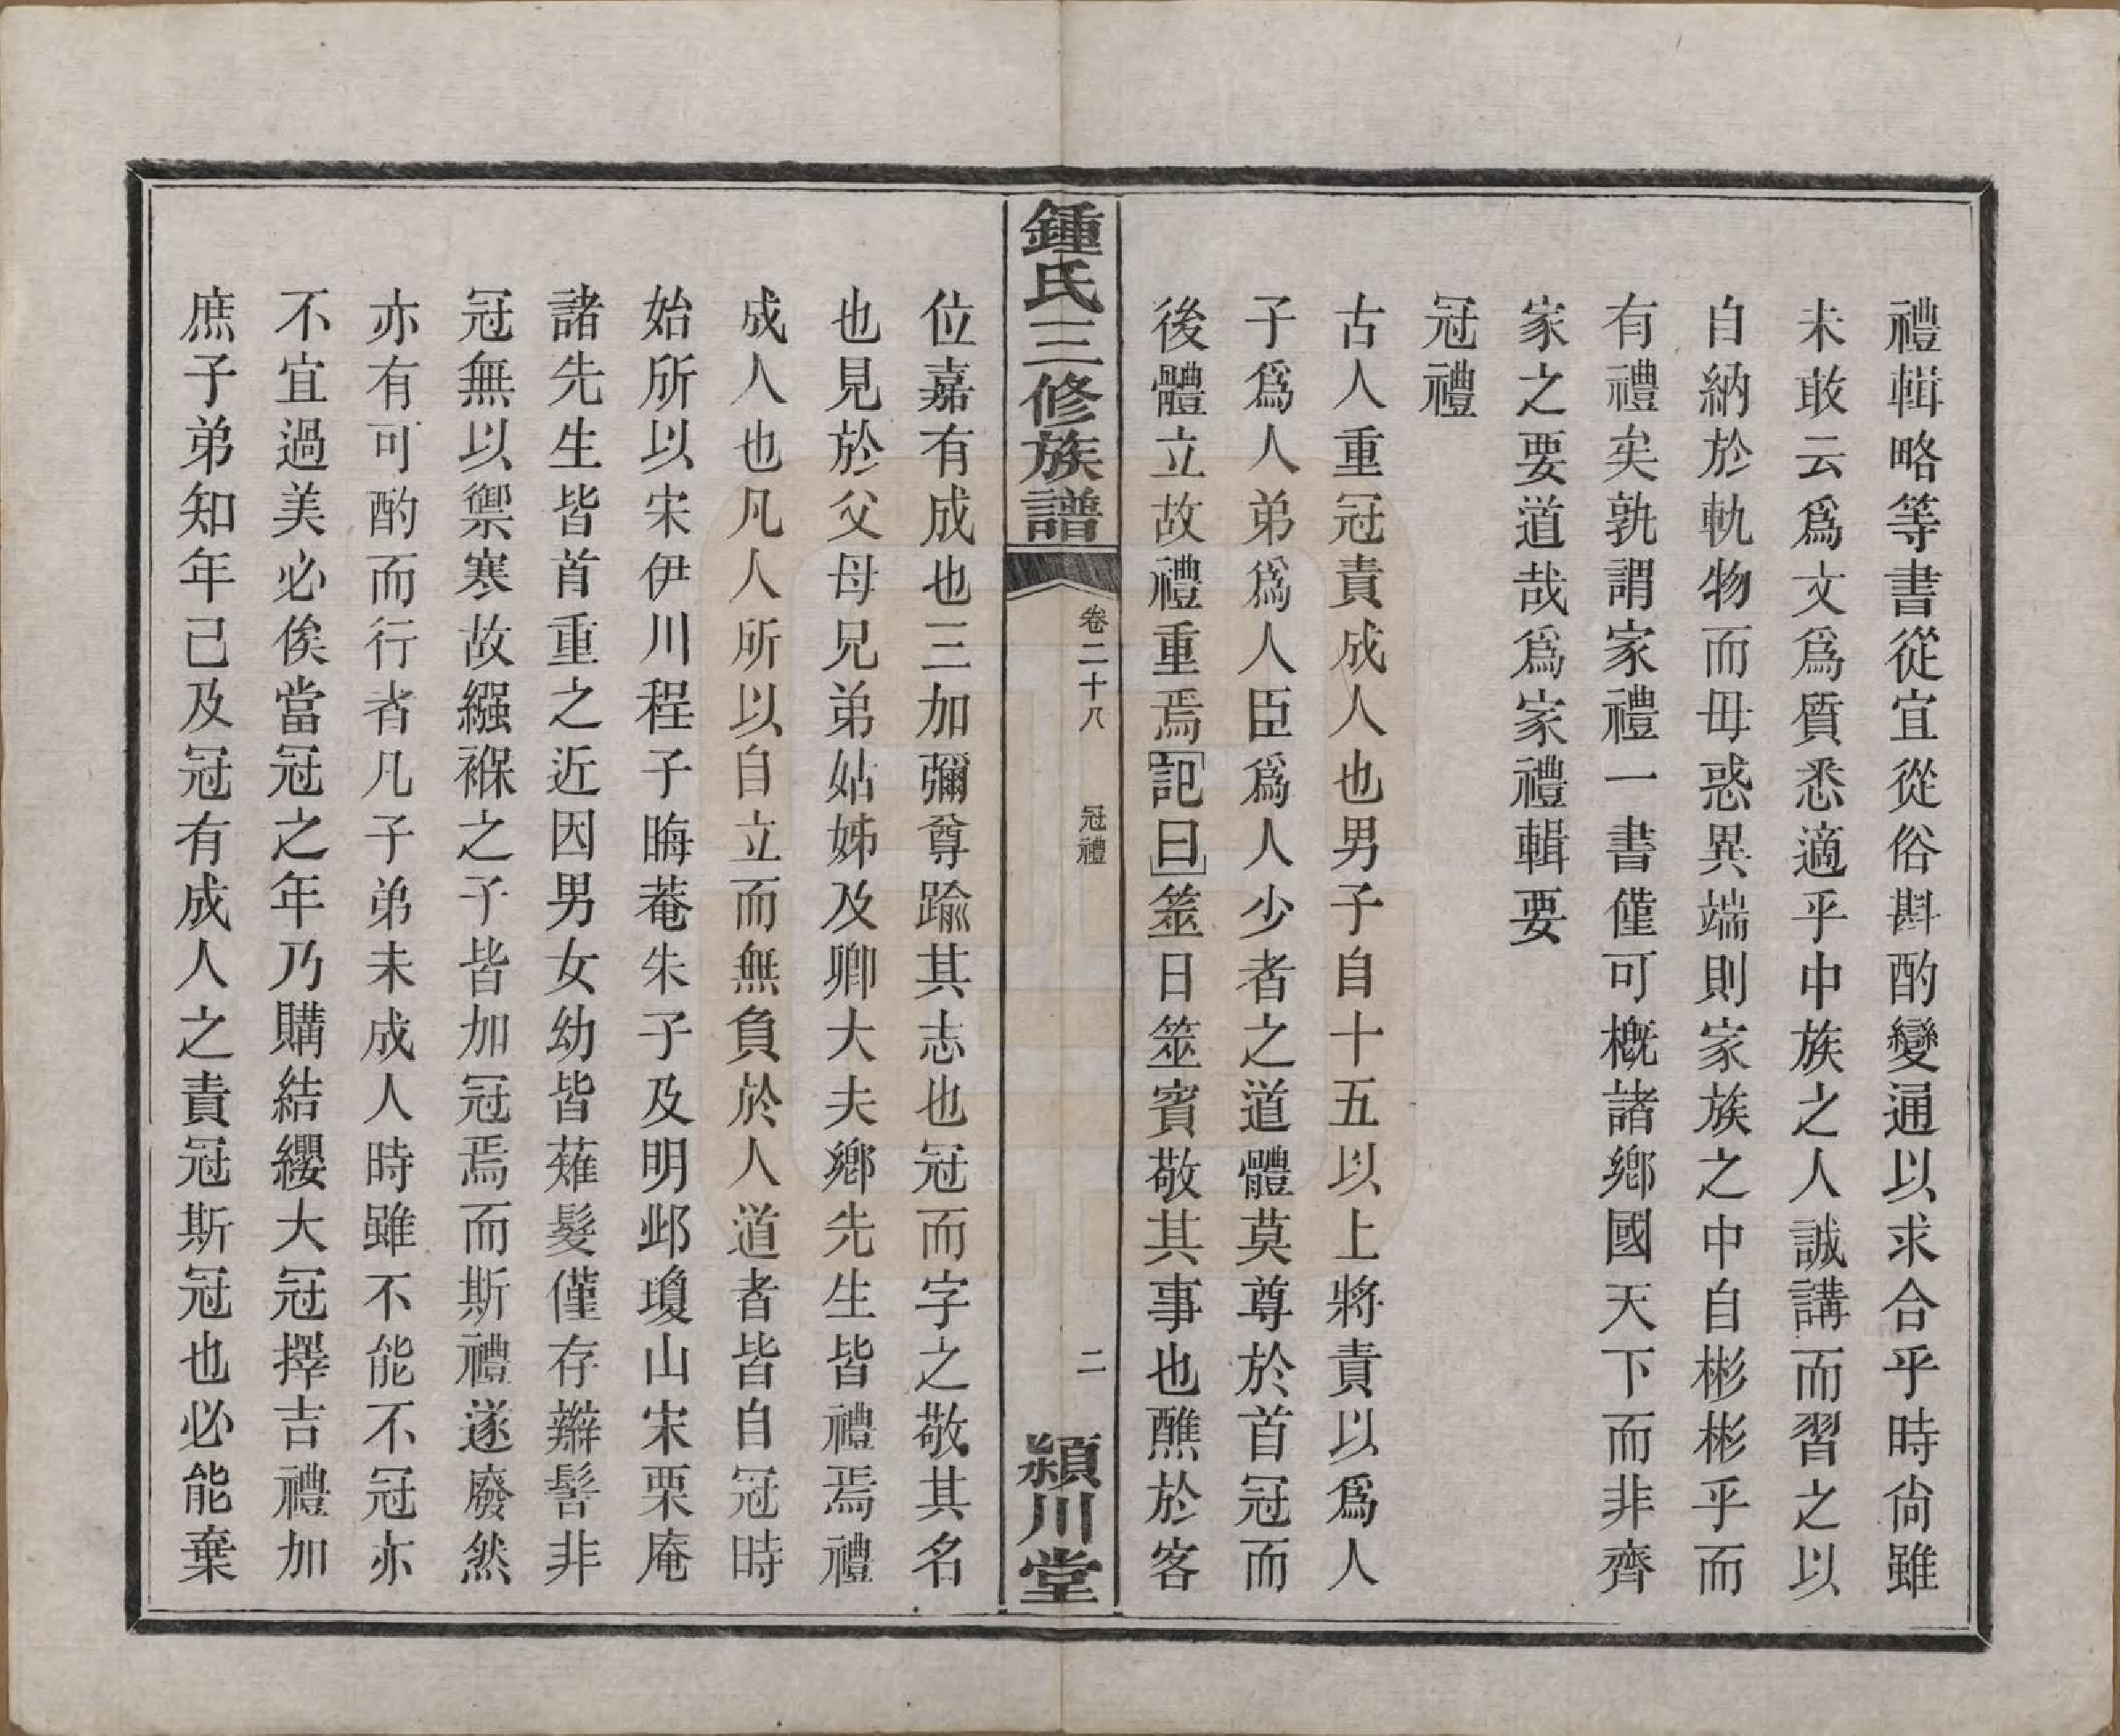 禮輯略等書從宜從俗斟酌變通以求合乎時尙雖
未敢云爲文爲質悉適乎中族之人誠講而習之以
自納於軌物而毋惑異端則家族之中自彬彬乎而
有禮矣孰謂家禮一書僅可概諸鄉國天下而非齊
家之要道哉爲家禮輯要
冠禮
古人重冠責成人也男子自十五以上將責以爲人
子爲人弟爲人臣爲人少者之道體莫尊於首冠而
後體立故禮重焉記曰筮日筮賓敬其事也醮於客
鍾氏三修族譜
卷二十八
冠禮
二
潁川堂
位嘉有成也三加彌尊踰其志也冠而字之敬其名
也見於父母兄弟姑姊及卿大夫鄉先生皆禮焉禮
成人也凡人所以自立而無負於人道者皆自冠時
始所以宋伊川程子晦菴朱子及明邱瓊山宋栗庵
諸先生皆首重之近因男女幼皆薙髮僅存辮髻非
冠無以禦寒故繈褓之子皆加冠焉而斯禮遂廢然
亦有可酌而行者凡子弟未成人時雖不能不冠亦
不宜過美必俟當冠之年乃購結纓大冠擇吉禮加
庶子弟知年已及冠有成人之責冠斯冠也必能棄